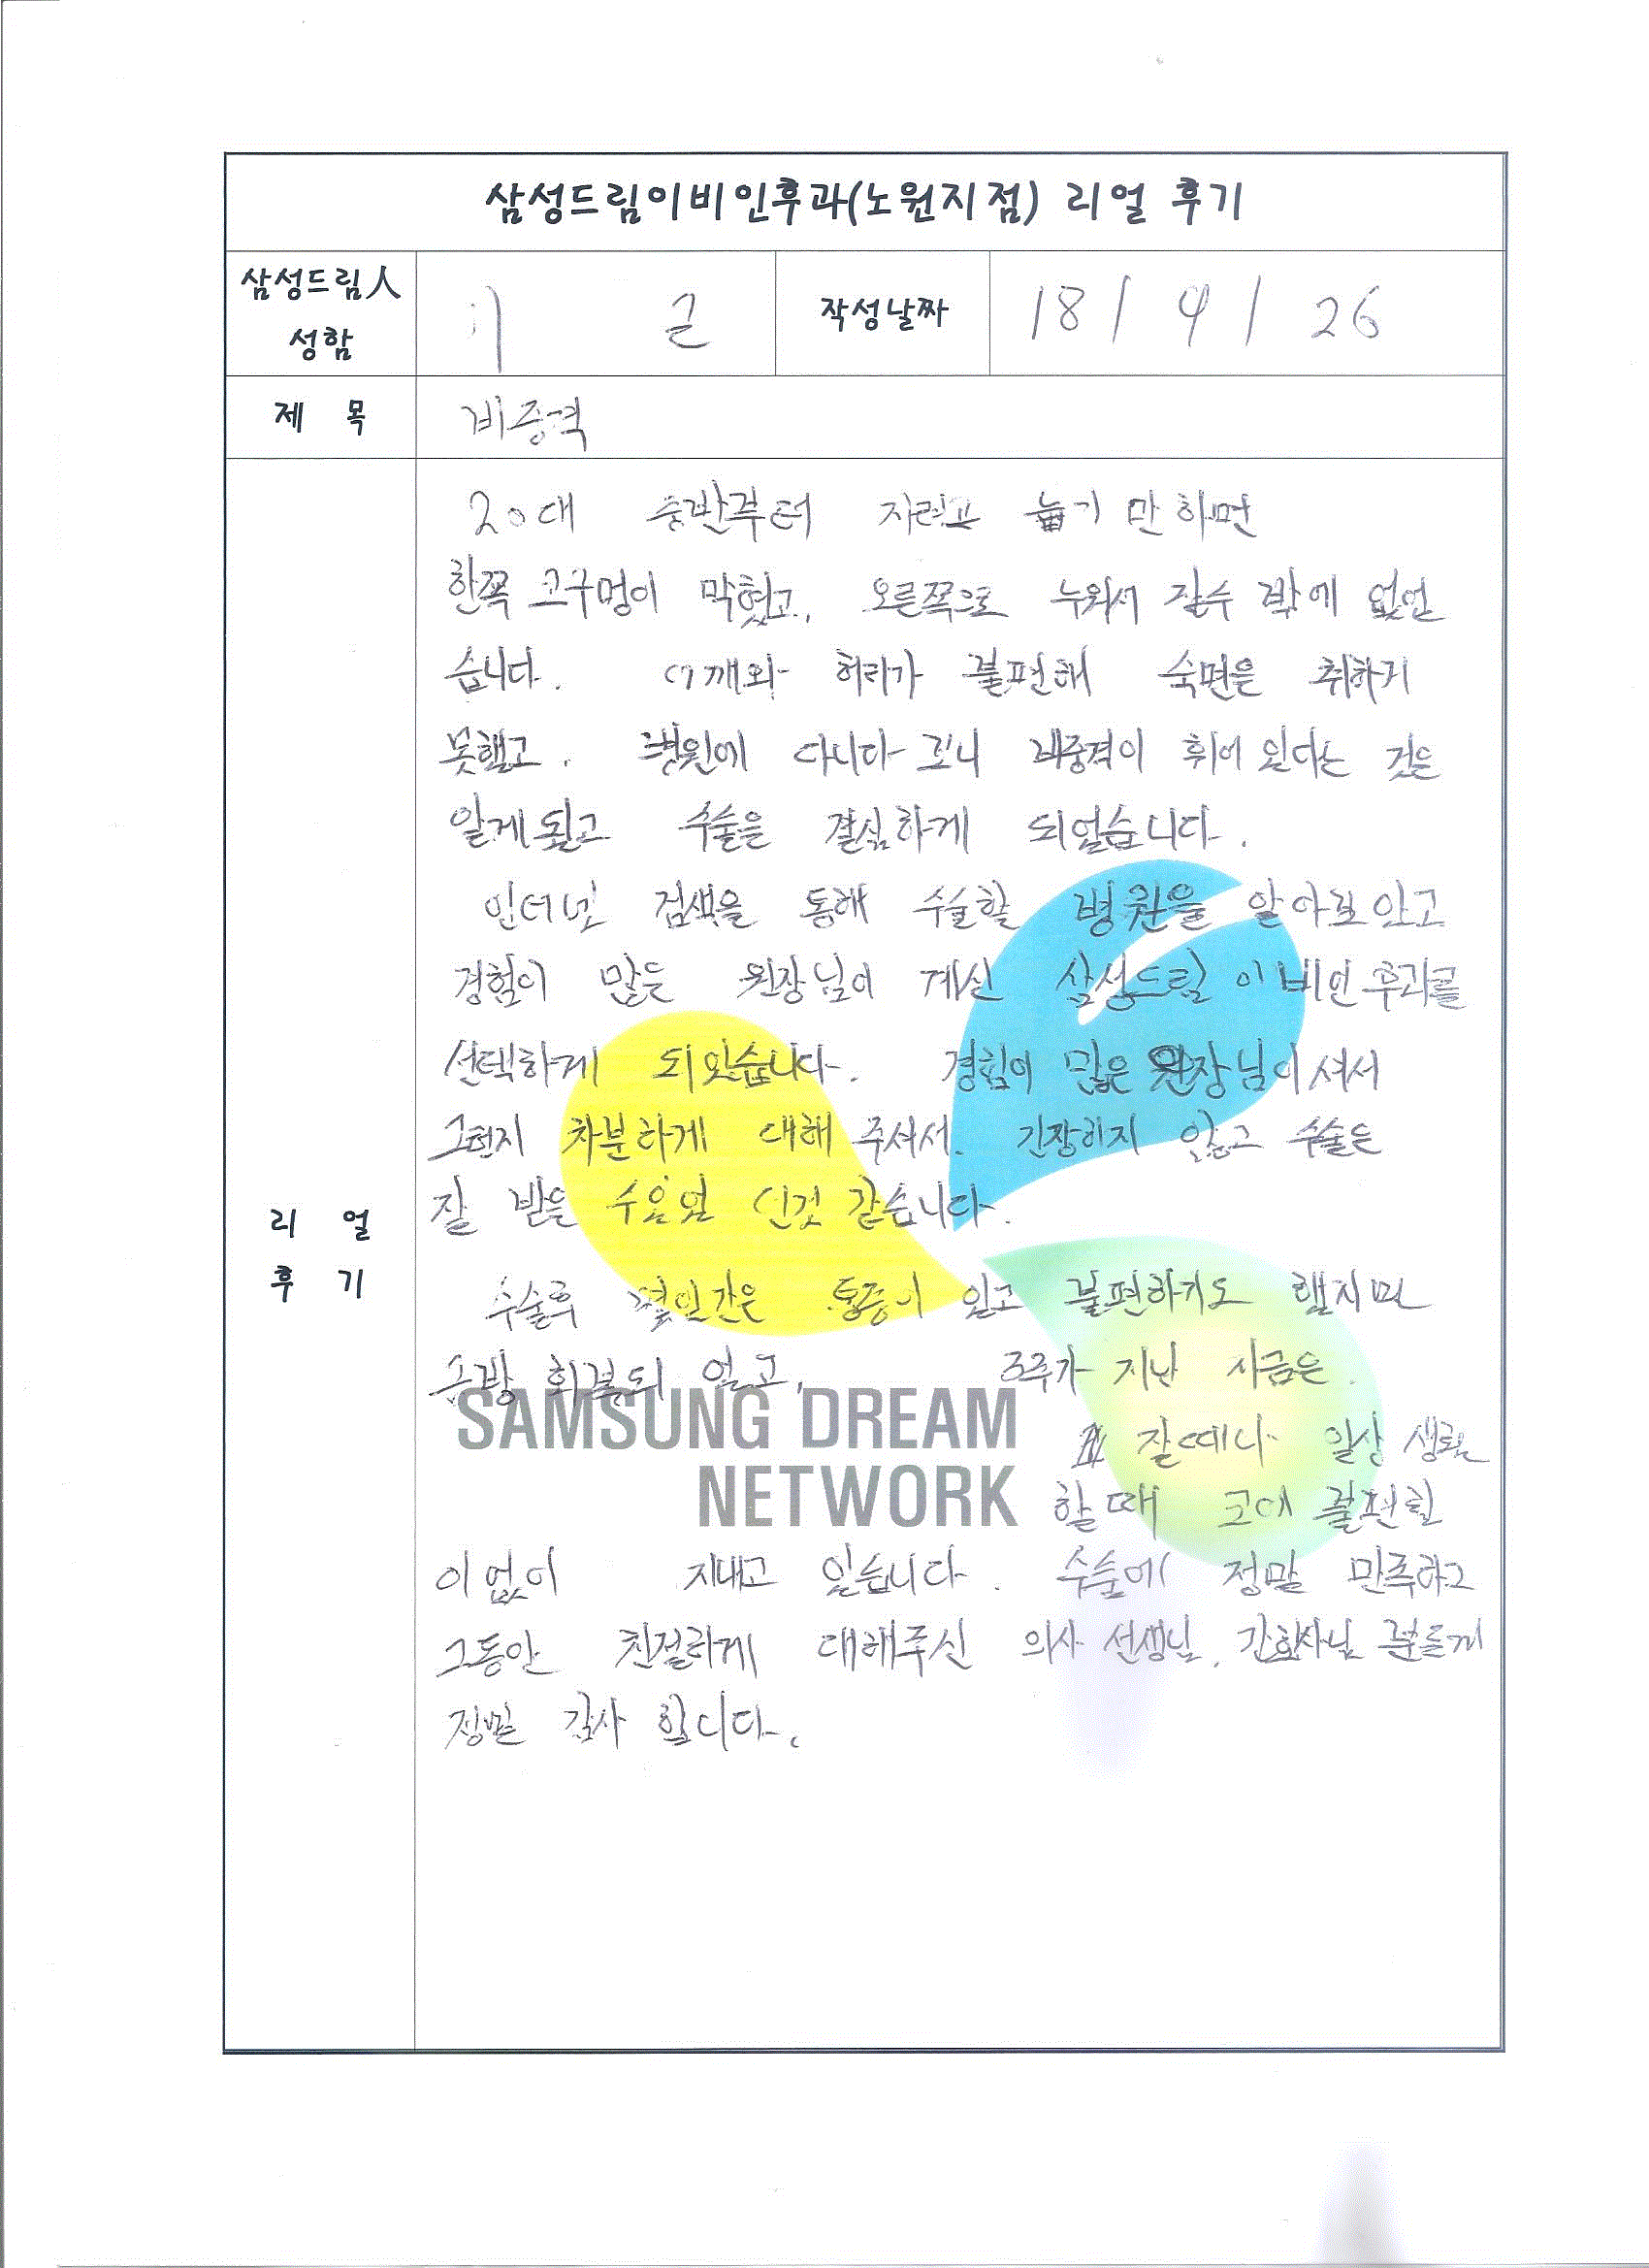 삼성드림이비인후과(노원지점) 리얼 후기
삼성드림人
성함
근
작성날짜
18 / 4 / 26
제 목
비중격
20대 중반부터 자려고 눕기 만 하면
한쪽 코구멍이 막혔고, 오른쪽으로 누워서 잘수 밖에 없었
습니다. 어깨와 허리가 불편해 숙면을 취하지
못했고. 병원에 다니다 보니 비중격이 휘어 있다는 것은
알게됬고 수술을 결심하게 되었습니다.
인터넷 검색을 통해 수술할 병원을 알아보았고
경험이 많은 원장님이 계신 삼성드림 이비인후과를
선택하게 되었습니다. 경험이 많은 원장님이셔서
그런지 차분하게 대해 주셔서. 긴장하지 않고 수술은
잘 받을 수있었 던것 같습니다.
수술후 몇일간은 통증이 있고 불편하기도 했지만
금방 회복되 었고, 3주가 지난 지금은
잘때나 일상 생활
할때 코에 불편함
이 없이 지내고 있습니다. 수술에 정말 만족하고
그동안 친절하게 대해주신 의사 선생님, 간호사님 분들께
정말 감사 합니다.
리 얼
후 기
SAMSUNG DREAM
NETWORK